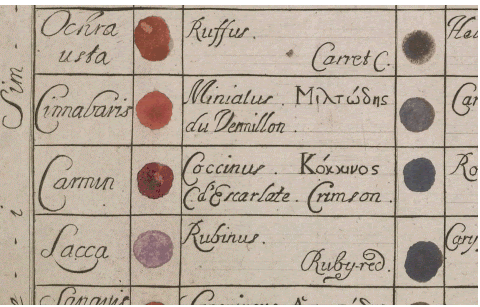 Ochra
usta
Ruffus.
Carret C.
Cinnabaris
Miniatus. Μιλτώδης
du Vermillon.
Carmin
Coccinus. Κόκκινος
C. d'Escarlate. Crimson.
Lacca
Rubinus.
Ruby-red.
Sim